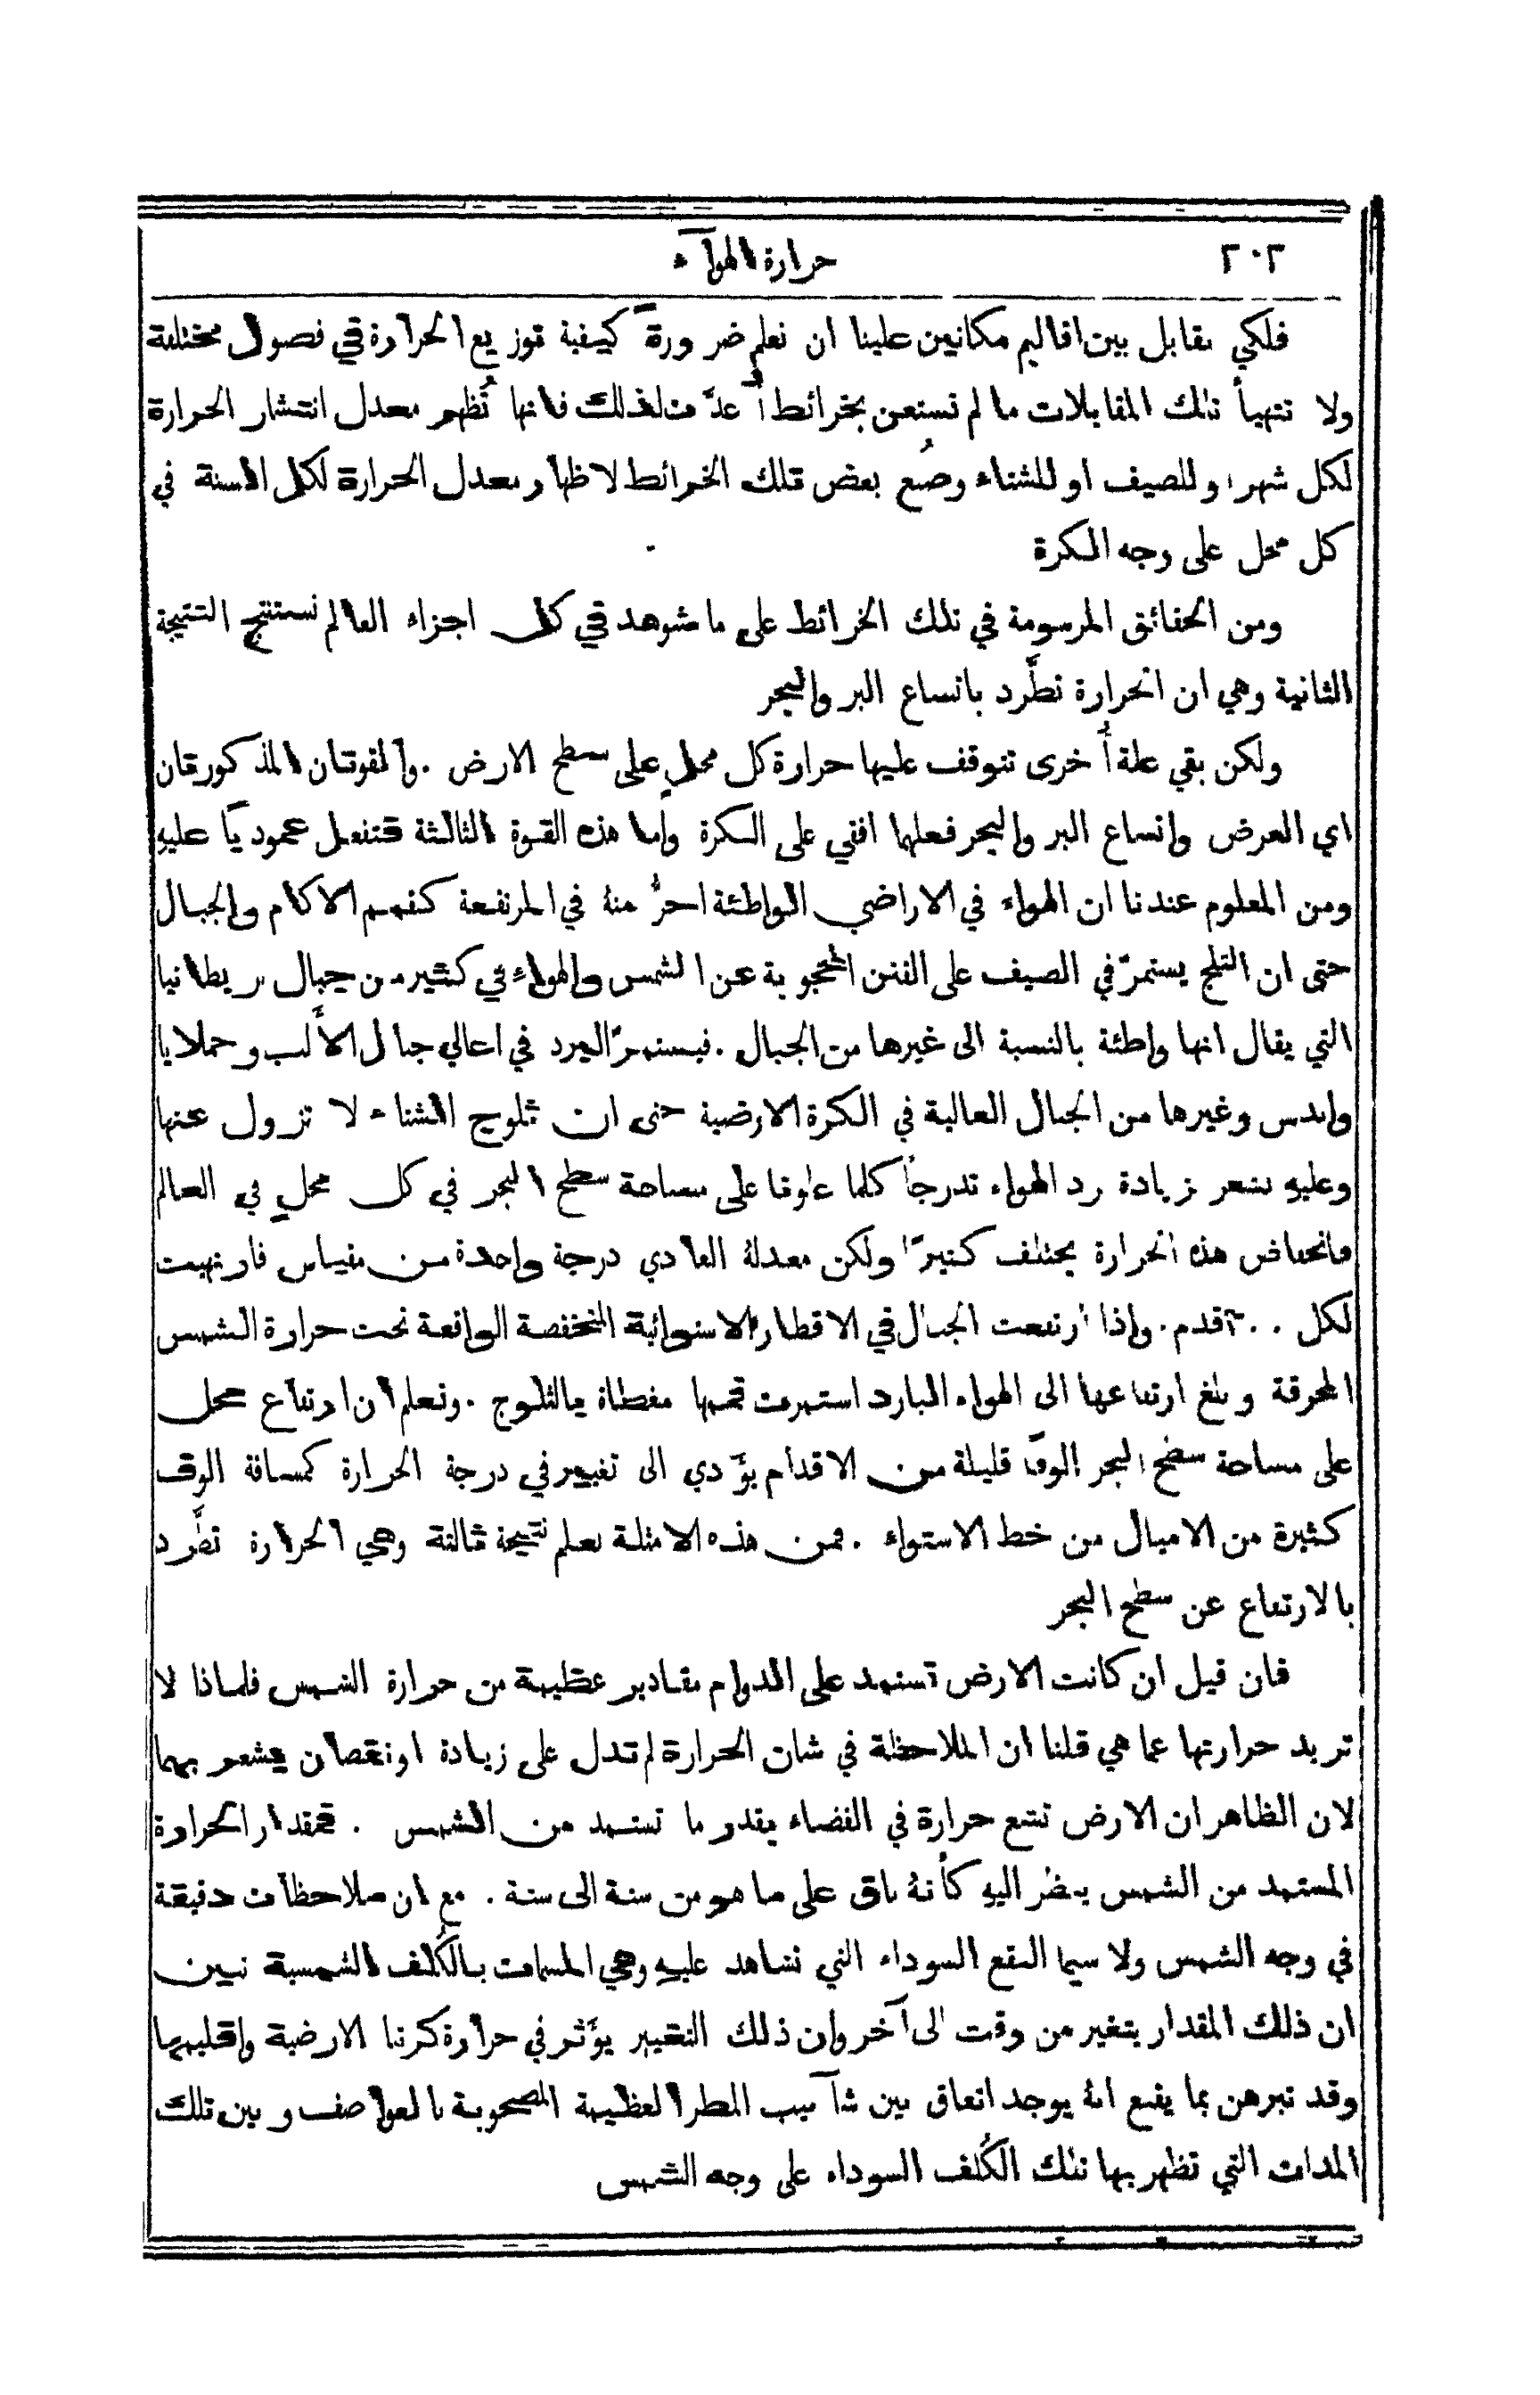 ٢٠٢ حرارة الهوآء
فلكي نقابل بين اقاليم مكانين علينا ان نعلم ضرورةً كيفية توزيع الحرارة في فصول مختلفة
ولا تتهيأ تلك المقابلات ما لم نستعن بخرائط أُعدَّت لذلك فانها تُظهر معدل انتشار الحرارة
لكل شهر او للصيف او للشتاء وضُع بعض تلك الخرائط لاظهار معدل الحرارة لكل السنة في
كل محل على وجه الكرة
ومن الحقائق المرسومة في تلك الخرائط على ما شوهد في كل اجزاء العالم نستنتج النتيجة
الثانية وهي ان الحرارة تطَّرد باتساع البر والبحر
ولكن بقي علة أُخرى تتوقف عليها حرارة كل محلٍ على سطح الارض . والقوتان المذكورتان
اي العرض واتساع البر والبحر فعلها افقي على الكرة وأما هذه القوة الثالثة فتفعل عموديًا عليهِ
ومن المعلوم عندنا ان الهواء في الاراضي الواطئة احرُّ منهُ في المرتفعة كقمم الاكام والجبال
حتى ان الثلج يستمرّ في الصيف على القنن المحجوبة عن الشمس والهواءِ في كثير من جبال بريطانيا
التي يقال انها واطئة بالنسبة الى غيرها من الجبال . فيستمرّ البرد في اعالي جبال الأَلب وحملايا
واندس وغيرها من الجبال العالية في الكرة الارضية حتى ان ثلوج الشتاء لا تزول عنها
وعليهِ نشعر بزيادة برد الهواء تدرجاً كلما علونا على مساحة سطح البحر في كل محلٍ في العالم
فانخفاض هذه الحرارة يختلف كثيرًا ولكن معدلهُ العادي درجة واحدة من مقياس فارنهيت
لكل ٣٠٠ قدم . واذا ارتفعت الجبال في الاقطار الاستوائية المنخفضة الواقعة تحت حرارة الشمس
المحرقة وبلغ ارتفاعها الى الهواء البارد استمرت قممها مغطاة بالثلوج . ونعلم ان ارتفاع محل
على مساحة سطح البحر الوفًا قليلة من الاقدام يؤَدي الى تغيير في درجة الحرارة كمسافة الوف
كثيرة من الاميال من خط الاستواء . فمن هذه الامثلة نعلم نتيجة ثالثة وهي الحرارة تطَّرد
بالارتفاع عن سطح البحر
فان قيل ان كانت الارض تستمد على الدوام مقادير عظيمة من حرارة الشمس فلماذا لا
تزيد حرارتها عما هي قلنا ان الملاحظة في شان الحرارة لم تدل على زيادة او نقصان يشعر بهما
لان الظاهر ان الارض تشع حرارة في الفضاء بقدر ما تستمد من الشمس . فمقدار الحرارة
المستمد من الشمس ينظر اليهِ كأَنهُ باق على ما هو من سنة الى سنة . مع ان ملاحظات دقيقة
في وجه الشمس ولا سيما البقع السوداء التي تشاهد عليهِ وهي المسمات بالكُلف الشمسية تبين
ان ذلك المقدار يتغير من وقت الى آخر وان ذلك التغيير يؤَثر في حرارة كرتنا الارضية واقليمها
وقد تبرهن بما يقنع انهُ يوجد اتفاق بين شآبيب المطر العظيمة المصحوبة بالعواصف وبين تلك
المدات التي تظهر بها تلك الكُلف السوداء على وجه الشمس